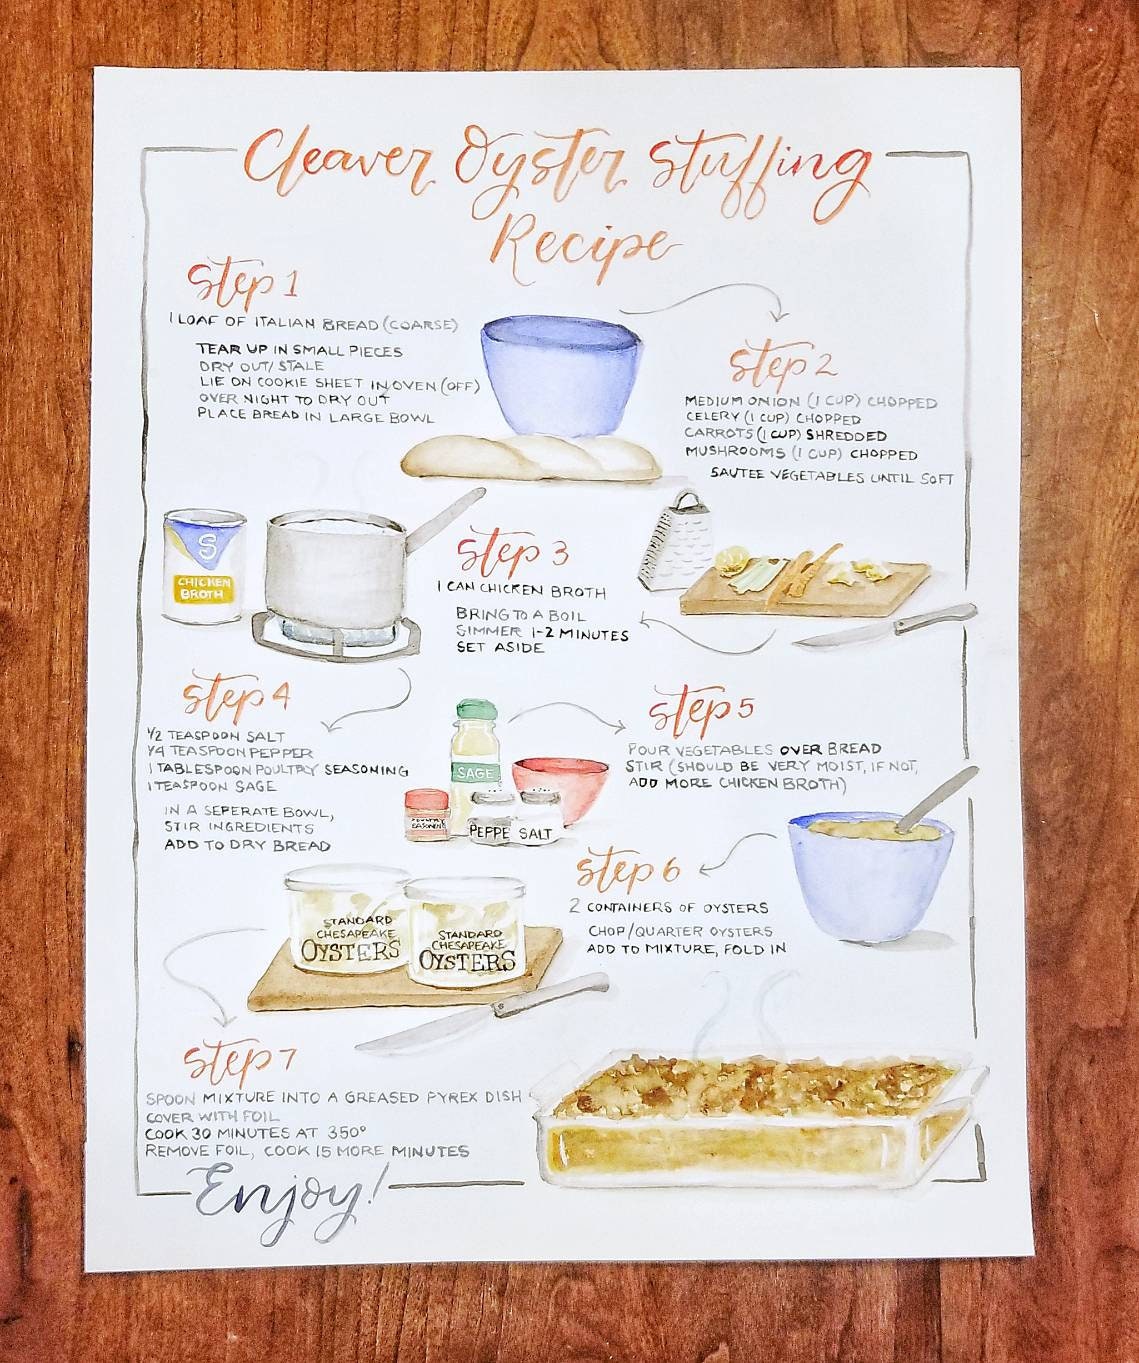 Cleaver Oyster Stuffing
Recipe
Step 1
1 LOAF OF ITALIAN BREAD (COARSE)
TEAR UP IN SMALL PIECES
DRY OUT/STALE
LIE ON COOKIE SHEET IN OVEN (OFF)
OVER NIGHT TO DRY OUT
PLACE BREAD IN LARGE BOWL
Step 2
MEDIUM ONION (1 CUP) CHOPPED
CELERY (1 CUP) CHOPPED
CARROTS (1 CUP) SHREDDED
MUSHROOMS (1 CUP) CHOPPED
SAUTEE VEGETABLES UNTIL SOFT
S
CHICKEN
BROTH
Step 3
1 CAN CHICKEN BROTH
BRING TO A BOIL
SIMMER 1-2 MINUTES
SET ASIDE
Step 4
1/2 TEASPOON SALT
1/4 TEASPOON PEPPER
1 TABLESPOON POULTRY SEASONING
1 TEASPOON SAGE
IN A SEPERATE BOWL,
STIR INGREDIENTS
ADD TO DRY BREAD
SAGE
POULTRY
SEASONING
PEPPE
SALT
Step 5
POUR VEGETABLES OVER BREAD
STIR (SHOULD BE VERY MOIST, IF NOT,
ADD MORE CHICKEN BROTH)
Step 6
2 CONTAINERS OF OYSTERS
CHOP/QUARTER OYSTERS
ADD TO MIXTURE, FOLD IN
STANDARD
CHESAPEAKE
OYSTERS
STANDARD
CHESAPEAKE
OYSTERS
Step 7
SPOON MIXTURE INTO A GREASED PYREX DISH
COVER WITH FOIL
COOK 30 MINUTES AT 350°
REMOVE FOIL, COOK 15 MORE MINUTES
Enjoy!